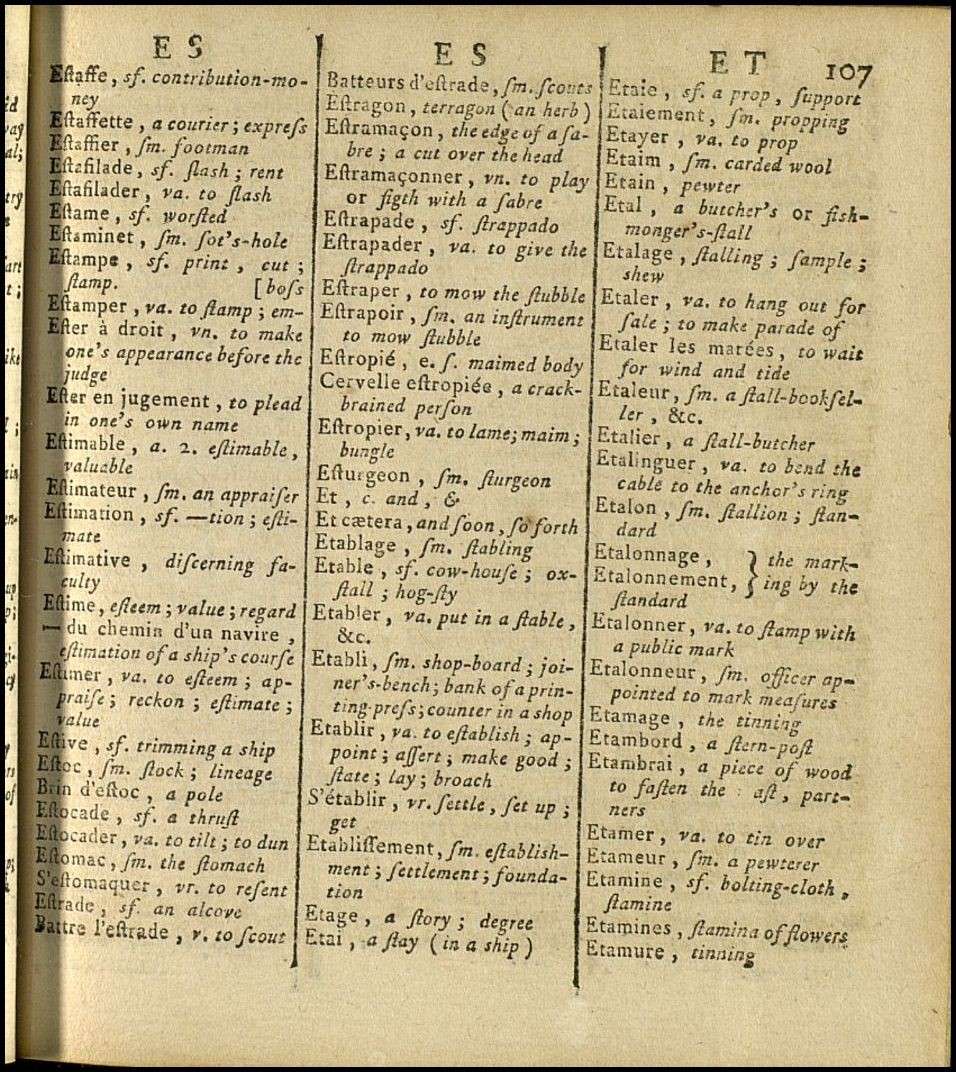 ES
Eſtaffe, sf. contribution-mo-
ney
Eſtaffette, a courier; expreſs
Eſtaffier, ſm. footman
Eſtafilade, sf. ſlash; rent
Eſtafilader, va. to ſlash
Eſtame, sf. worſted
Eſtaminet, ſm. ſot's-hole
Eſtampe, sf. print, cut;
ſtamp. [boſs
Eſtamper, va. to ſtamp; em-
Eſter à droit, vn. to make
one's appearance before the
judge
Eſter en jugement, to plead
in one's own name
Eſtimable, a. 2. eſtimable,
valuable
Eſtimateur, ſm. an appraiſer
Eſtimation, sf. —tion; eſti-
mate
Eſtimative, diſcerning fa-
culty
Eſtime, eſteem; value; regard
— du chemin d'un navire,
eſtimation of a ship's courſe
Eſtimer, va. to eſteem; ap-
praiſe; reckon; eſtimate;
value
Eſtive, sf. trimming a ship
Eſtoc, ſm. ſtock; lineage
Brin d'eſtoc, a pole
Eſtocade, sf. a thruſt
Eſtocader, va. to tilt; to dun
Eſtomac, ſm. the ſtomach
S'eſtomaquer, vr. to reſent
Eſtrade, sf. an alcove
Battre l'eſtrade, v. to ſcout
ES
Batteurs d'eſtrade, ſm. ſcouts
Eſtragon, terragon (an herb)
Eſtramaçon, the edge of a ſa-
bre; a cut over the head
Eſtramaçonner, vn. to play
or figth with a ſabre
Eſtrapade, sf. ſtrappado
Eſtrapader, va. to give the
ſtrappado
Eſtraper, to mow the ſtubble
Eſtrapoir, ſm. an inſtrument
to mow ſtubble
Eſtropié, e. ſ. maimed body
Cervelle eſtropiée, a crack-
brained perſon
Eſtropier, va. to lame; maim;
bungle
Eſturgeon, ſm. ſturgeon
Et, c. and, &
Et cætera, and ſoon, ſo forth
Etablage, ſm. ſtabling
Etable, sf. cow-houſe; ox-
ſtall; hog-ſty
Etabler, va. put in a ſtable,
&c.
Etabli, ſm. shop-board; joi-
ner's-bench; bank of a prin-
ting-preſs; counter in a shop
Etablir, va. to eſtablish; ap-
point; aſſert; make good;
ſtate; lay; broach
S'établir, vr. ſettle, ſet up;
get
Etabliſſement, ſm. eſtablish-
ment; ſettlement; founda-
tion
Etage, a ſtory; degree
Etai, a ſtay (in a ship)
ET 107
Etaie, sf. a prop, ſupport
Etaiement, ſm. propping
Etayer, va. to prop
Etaim, ſm. carded wool
Etain, pewter
Etal, a butcher's or fish-
monger's-ſtall
Etalage, ſtalling; ſample;
shew
Etaler, va. to hang out for
ſale; to make parade of
Etaler les marées, to wait
for wind and tide
Etaleur, ſm. a ſtall-bookſel-
ler, &c.
Etalier, a ſtall-butcher
Etalinguer, va. to bend the
cable to the anchor's ring
Etalon, ſm. ſtallion; ſtan-
dard
Etalonnage, } the mark-
Etalonnement, } ing by the
ſtandard
Etalonner, va. to ſtamp with
a public mark
Etalonneur, ſm. officer ap-
pointed to mark meaſures
Etamage, the tinning
Etambord, a ſtern-poſt
Etambrai, a piece of wood
to faſten the aſt, part-
ners
Etamer, va. to tin over
Etameur, ſm. a pewterer
Etamine, sf. bolting-cloth,
ſtamine
Etamines, ſtamina of flowers
Etamure, tinning